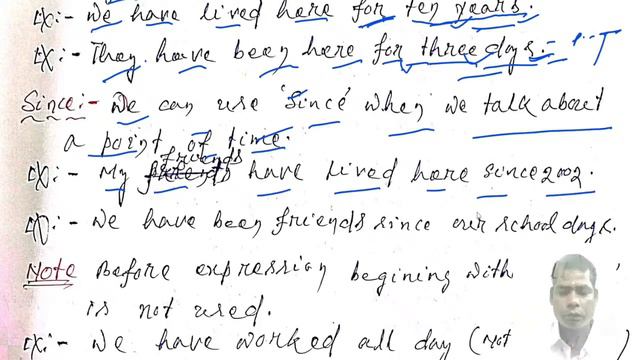 Ex:- We have lived here for ten years.
Ex:- They have been here for three days.
Since:- We can use 'since' when we talk about
a point of time.
Ex:- My friends have lived here since 2002.
Ex:- We have been friends since our school days.
Note Before expression begining with
is not used.
Ex:- We have worked all day (not